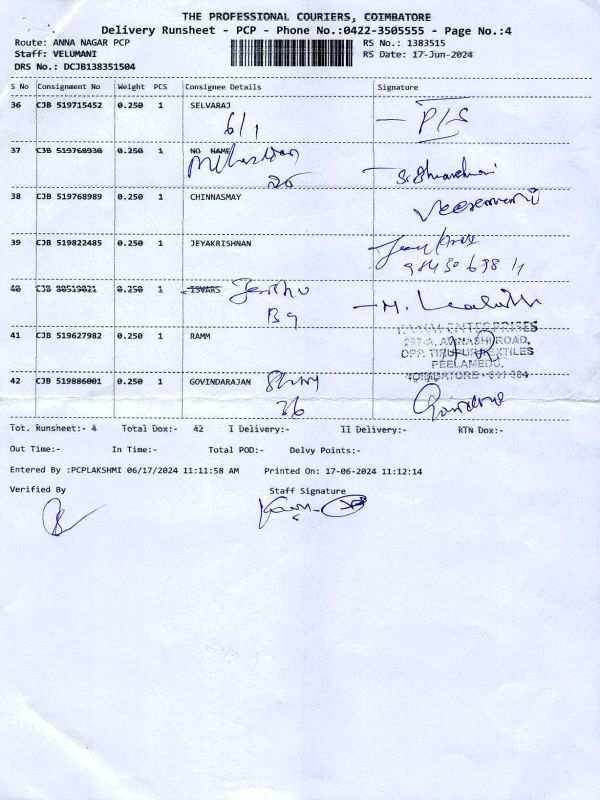 THE PROFESSIONAL COURIERS, COIMBATORE
Delivery Runsheet - PCP - Phone No.:0422-3505555 - Page No.:4
Route: ANNA NAGAR PCP RS No.: 1383515
Staff: VELUMANI RS Date: 17-Jun-2024
DRS No.: DCJB138351504
S No Consignment No Weight PCS Consignee Details Signature
36 CJB 519715452 0.250 1 SELVARAJ
6/1
37 CJB 519760930 0.250 1 NO NAME
38 CJB 519768989 0.250 1 CHINNASMAY
39 CJB 519822485 0.250 1 JEYAKRISHNAN
40 CJB 80519821 0.250 1 ISVARS
B9
41 CJB 519627982 0.250 1 RAMM
297-A, AVINASHI ROAD,
OPP. TIRUPUR TEXTILES
PEELAMEDU,
42 CJB 519886001 0.250 1 GOVINDARAJAN
36
Tot. Runsheet:- 4 Total Dox:- 42 I Delivery:- II Delivery:- RTN Dox:-
Out Time:- In Time:- Total POD:- Delvy Points:-
Entered By :PCPLAKSHMI 06/17/2024 11:11:58 AM Printed On: 17-06-2024 11:12:14
Verified By Staff Signature